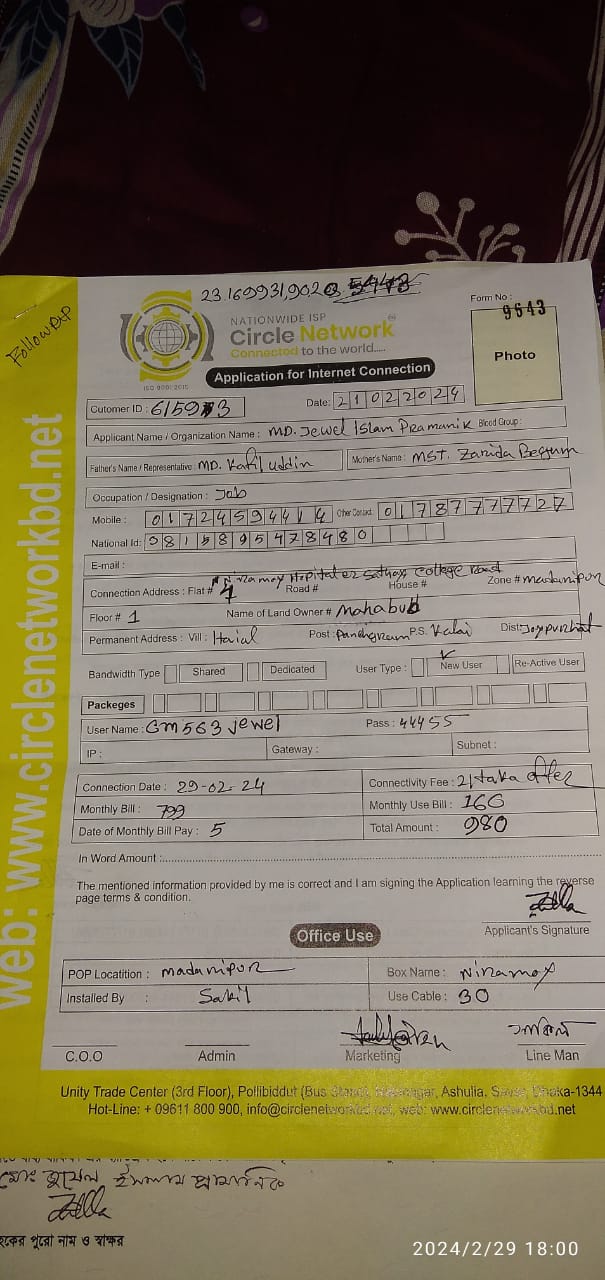 23.169931,902
Follow up
Form No :
9643
NATIONWIDE ISP
Circle Network
Connected to the world.....
ISO 9001:2015
Photo
Application for Internet Connection
Cutomer ID : 615973
Date: 21022024
Applicant Name / Organization Name : MD. Jewel Islam Pramanik Blood Group :
Father's Name / Representative : MD. Kafil uddin Mother's Name : MST. Zarida Begum
Occupation / Designation : Job
Mobile : 01724594414 Other Contact: 01787777727
National Id:
E-mail :
Connection Address : Flat # Road # College Road House # Zone # madanipur
Floor # 1 Name of Land Owner # Mahabub
Permanent Address : Vill : Harial Post : Panchgram P.S. Kalai Dist: Joypurhat
Bandwidth Type Shared Dedicated User Type : New User Re-Active User
Packeges
User Name : Cm563jewel Pass : 44455
IP : Gateway : Subnet :
Connection Date : 29-02-24 Connectivity Fee : 21 taka offer
Monthly Bill : 799 Monthly Use Bill : 160
Date of Monthly Bill Pay : 5 Total Amount : 980
In Word Amount :
The mentioned information provided by me is correct and I am signing the Application learning the reverse
page terms & condition.
Applicant's Signature
Office Use
POP Locatition : madanipur Box Name : Niramoy
Installed By : Sakil Use Cable : 30
C.O.O Admin Marketing Line Man
Unity Trade Center (3rd Floor), Pollibiddut (Bus Ashulia, Dhaka-1344
Hot-Line: + 09611 800 900, info@circlenetworkbd.net, web: www.circlenetworkbd.net
web: www.circlenetworkbd.net
মোঃ জুয়েল ইসলাম প্রামানিক
পুরো নাম ও স্বাক্ষর
2024/2/29 18:00